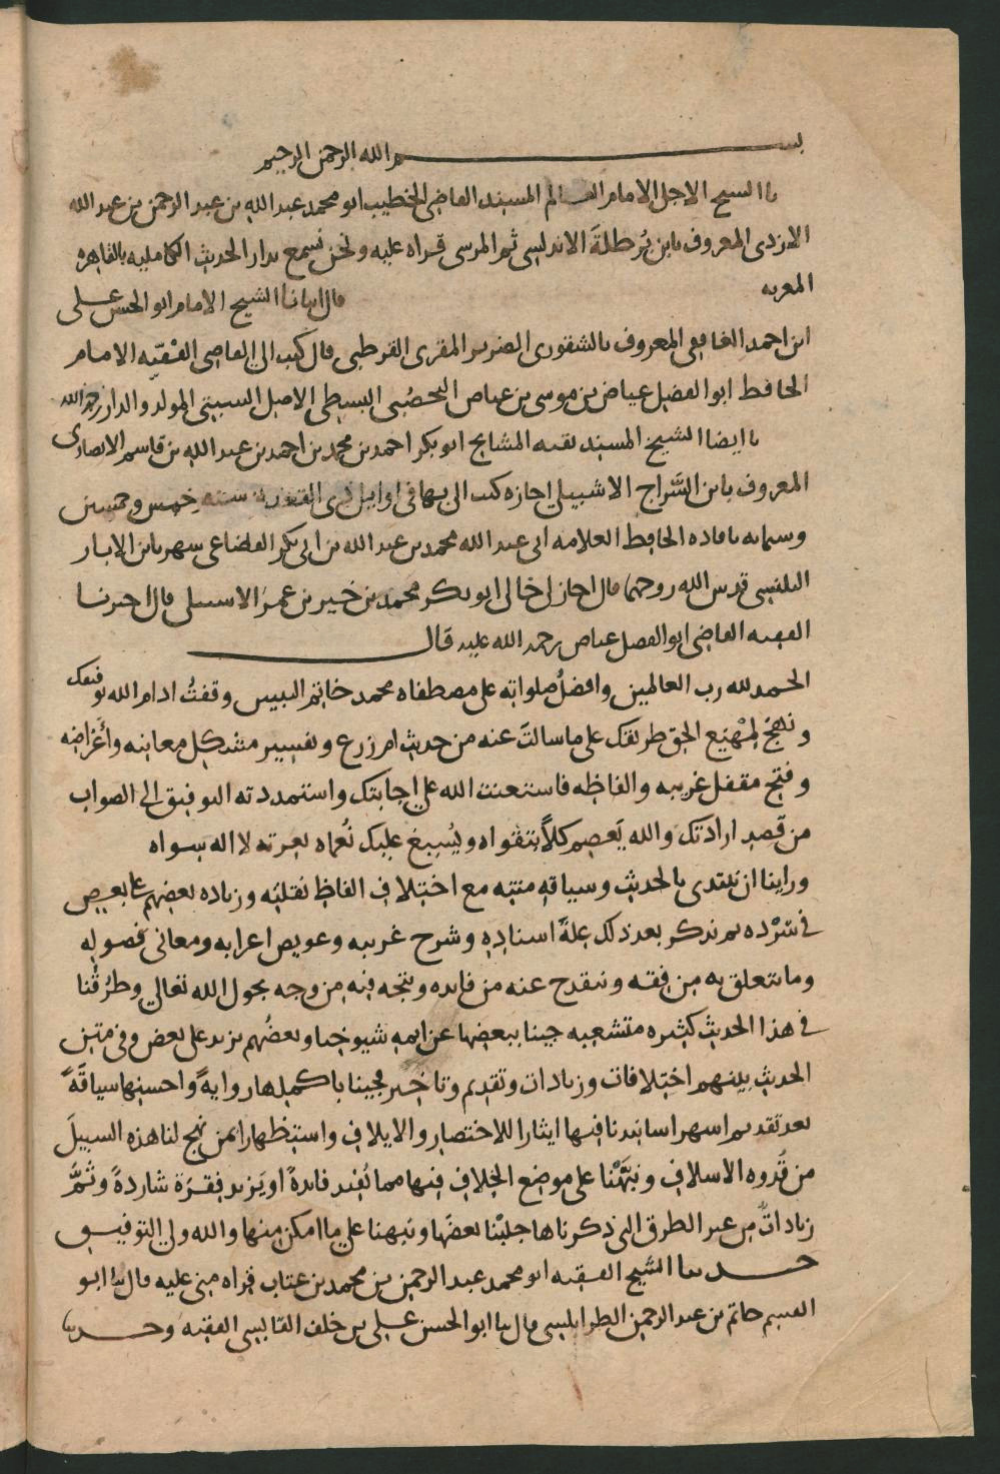 بسم الله الرحمن الرحيم
نا الشيخ الاجل الامام العالم المسند القاضي الخطيب ابو محمد عبد الله بن عبد الرحمن بن عبد الله
الازدي المعروف بابن برطلة الاندلسي ثم المرسي قراه عليه ونحن نسمع بدار الحديث الكامليه بالقاهره
المعزيه
قال انبانا الشيخ الامام ابو الحسن علي
ابن احمد الغافقي المعروف بالشقوري الضرير المقري القرطبي قال كتب الي القاضي الفقيه الامام
الحافظ ابو الفضل عياض بن موسى بن عياض اليحصبي البسطي الاصل السبتي المولد والدار رحمه الله
نا ايضا الشيخ المسند بقيه المشايخ ابو بكر احمد بن محمد بن احمد بن عبد الله بن قاسم الانصاري
المعروف بابن السراج الاشبيلي اجازه كتب الي بها في اوايل ذي القعده سنه خمس وخمسين
وستمايه بافاده الحافظ العلامه ابي عبد الله محمد بن عبد الله بن ابي بكر القضاعي شهر بابن الابار
البلنسي قدس الله روحهما قال اجاز لي خالي ابو بكر محمد بن خير بن عمر الاشبيلي قال اخبرنا
الفقيه القاضي ابو الفضل عياض رحمه الله عليه قال
الحمد لله رب العالمين وافضل صلواته على مصطفاه محمد خاتم النبيين وقفت ادام الله توفيقك
ونهج لمهيع الحق طريقك على ما سالت عنه من حديث ام زرع وتفسير مشكل معانيه وأغراضه
وفتح مقفل غريبه والفاظه فاستعنت الله على اجابتك واستمددته التوفيق الى الصواب
من قصد ارادتك والله يعصم كلاً بتقواه ويسبغ عليك نعماه بعزته لا اله سواه
وراينا ان نبتدي بالحديث وسياقه متنه مع اختلاف الفاظ نقلته وزياده بعضهم على بعض
في سرده ثم نذكر بعد ذلك علة اسناده وشرح غريبه وعويص اعرابه ومعاني فصوله
وما يتعلق به من فقه وينقدح عنه من فايده ويتجه فيه من وجه بحول الله تعالى وطرقنا
في هذا الحديث كثيره متشعبه جينا ببعضها عن ايمه شيوخنا وبعضهم يزيد على بعض وفي متن
الحديث بينهم اختلافات وزيادات وتقديم وتاخير فجينا باكملها روايةً واحسنها سياقةً
بعد تقديم اشهر اسانيدنا فيها ايثارا للاختصار والايلاف واستظهارا بمن نهج لنا هذه السبيل
من قدوه الاسلاف ونبهنا على موضع الخلاف فيها مما تفيد فايدةً او يزيد فقرة شاردةً وثمَّ
زيادات من غير الطرق التي ذكرناها جلبنا بعضها ونبهنا على ما امكن منها والله ولي التوفيق
حدثنا الشيخ الفقيه ابو محمد عبد الرحمن بن محمد بن عتاب قراه مني عليه قال نا ابو
القسم حاتم بن عبد الرحمن الطرابلسي قال نا ابو الحسن علي بن خلف القابسي الفقيه وحدثنا